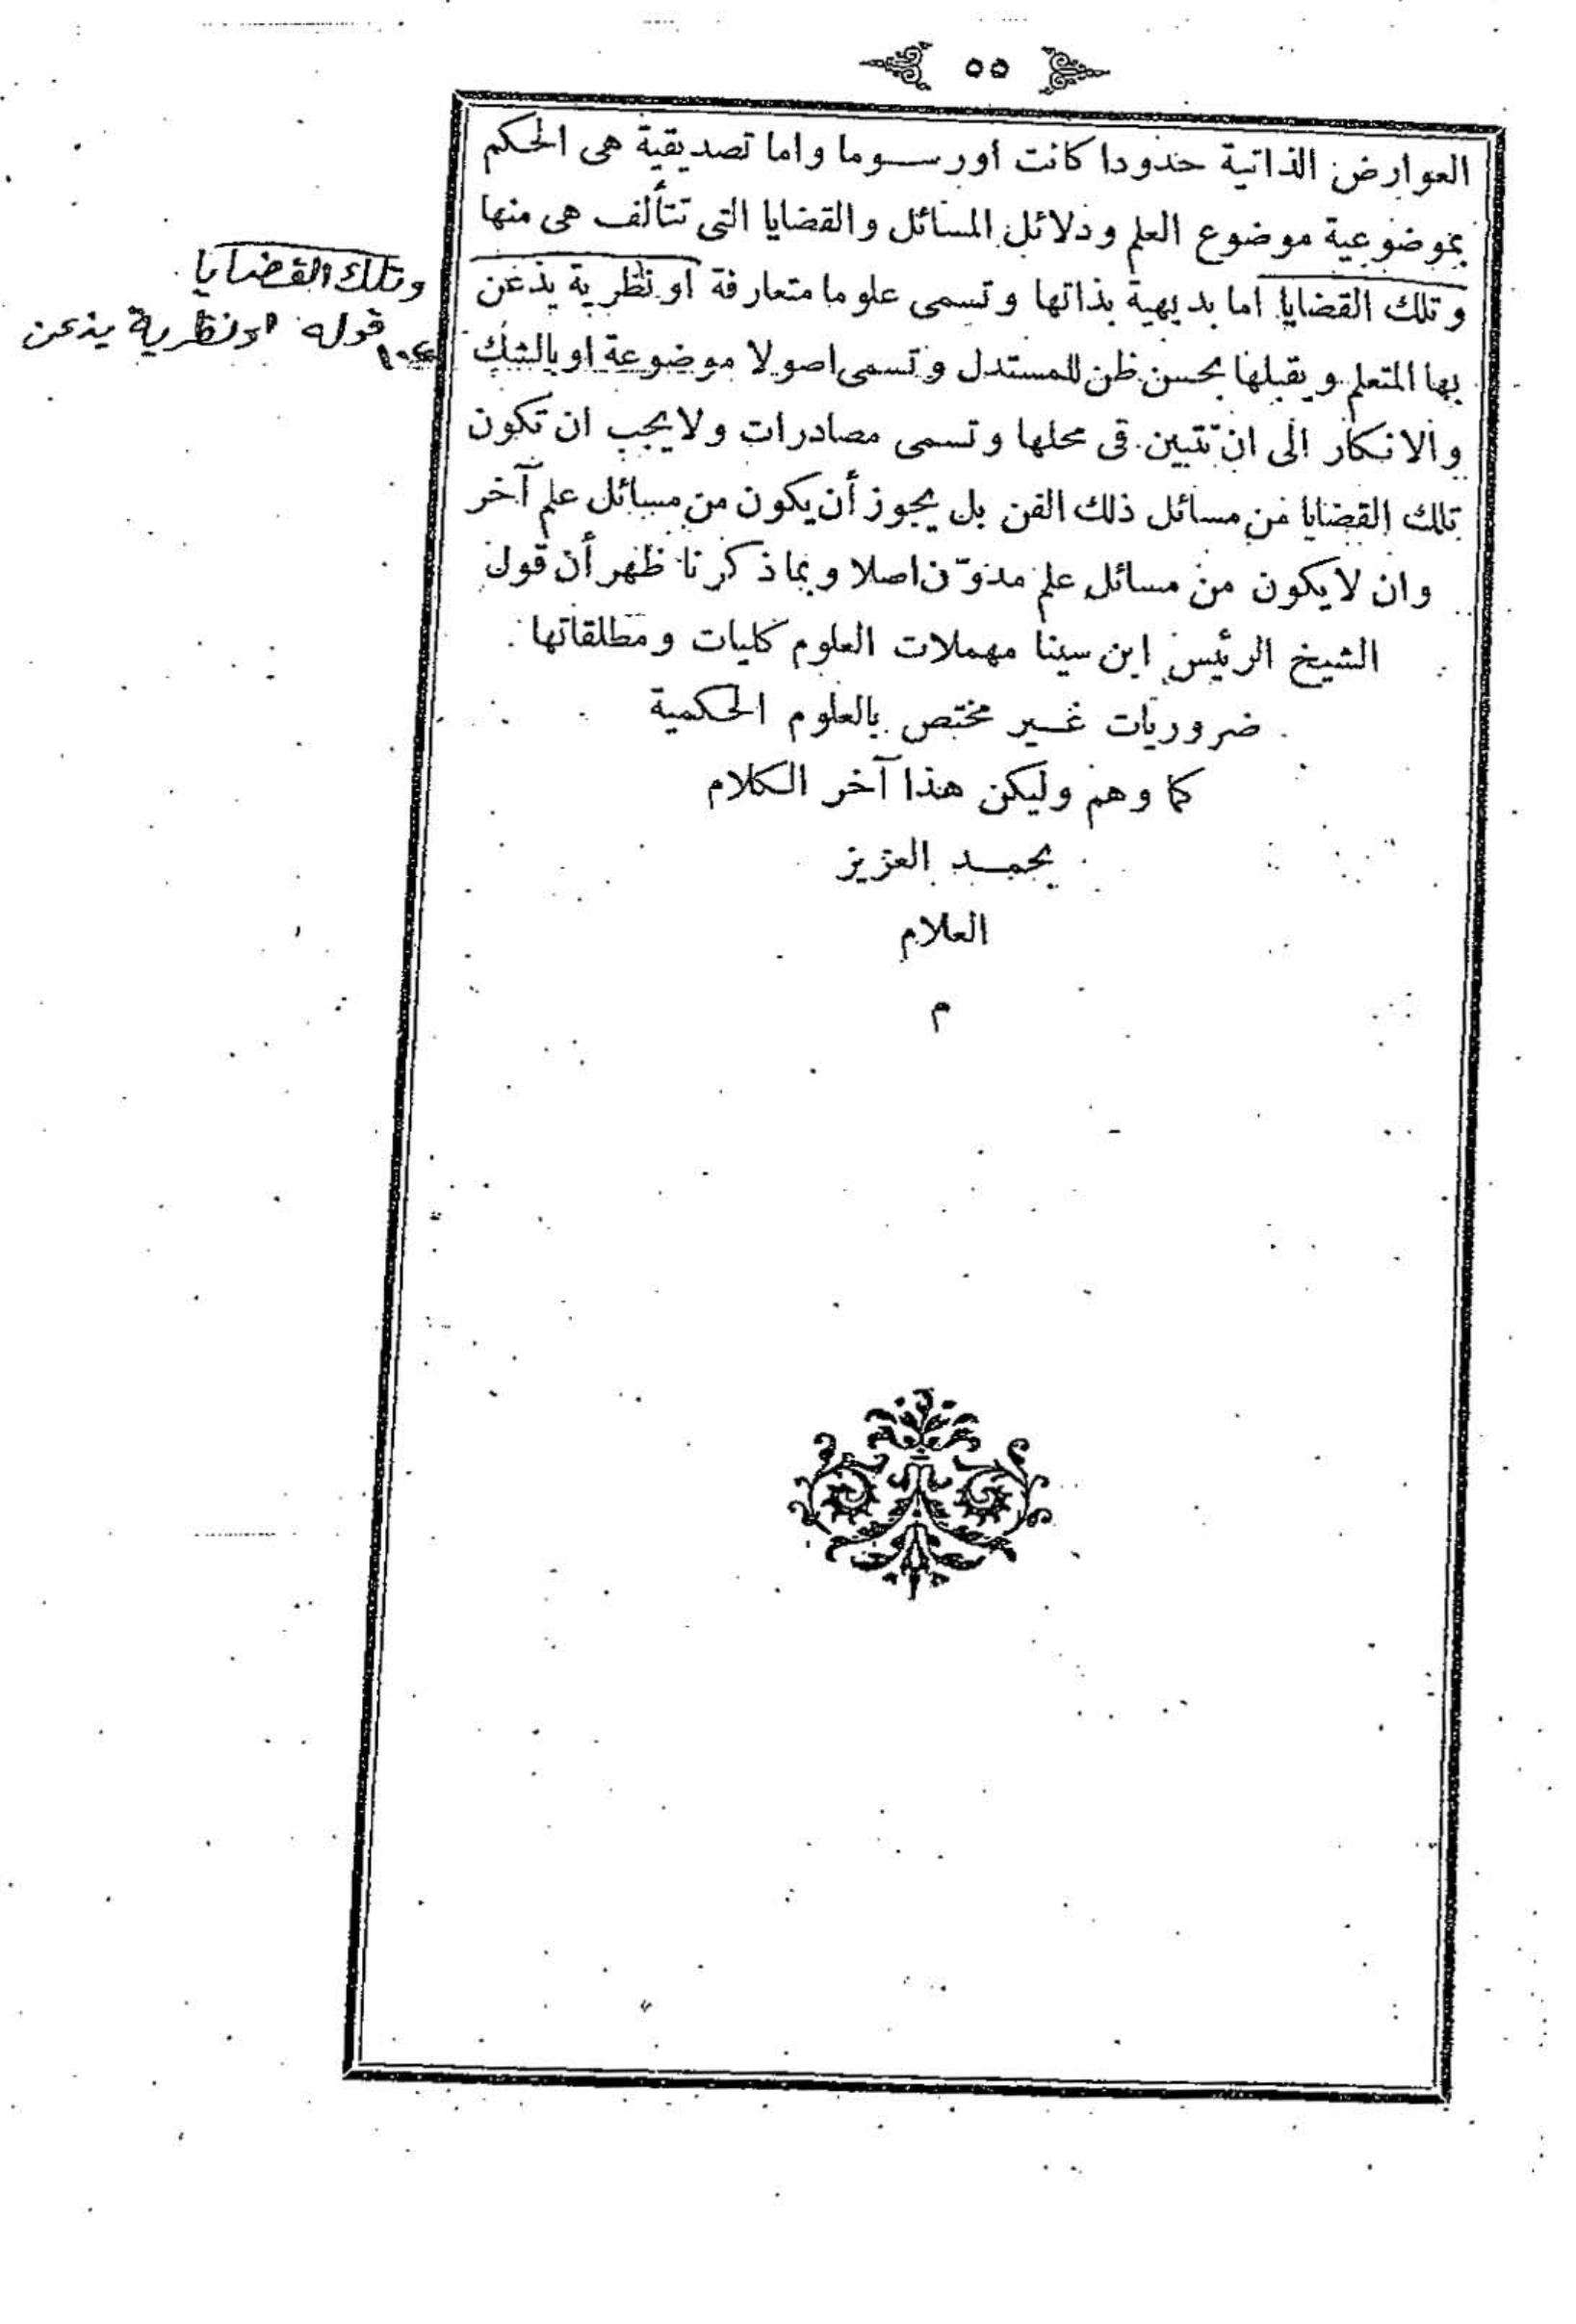 ٥٥
العوارض الذاتية حدودا كانت اورسوما واما تصديقية هى الحكم
بموضوعية موضوع العلم ودلائل المسائل والقضايا التى تتألف هى منها
وتلك القضايا اما بديهية بذاتها وتسمى علوما متعارفة او نظرية يذعن
بها المتعلم ويقبلها بحسن ظن للمستدل وتسمى اصولا موضوعة او بالشك
والانكار الى ان تتبين فى محلها وتسمى مصادرات ولا يجب ان تكون
تلك القضايا من مسائل ذلك الفن بل يجوز أن يكون من مسائل علم آخر
وان لا يكون من مسائل علم مدوّن اصلا وبما ذكرنا ظهر أن قول
الشيخ الرئيس ابن سينا مهملات العلوم كليات ومطلقاتها
ضروريات غير مختص بالعلوم الحكمية
كما وهم وليكن هذا آخر الكلام
بحمد العزيز
العلام
م
وتلك القضايا
قوله او نظرية يذعن